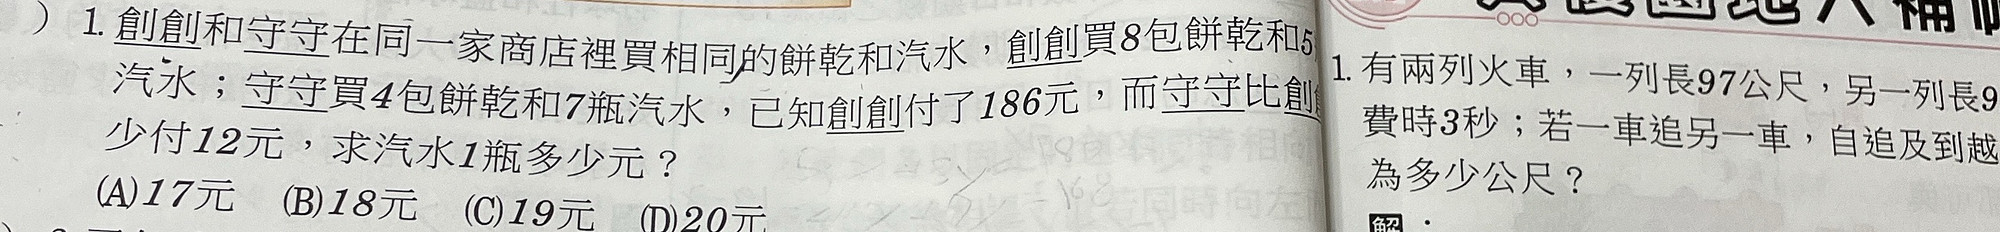 ) 1. 創創和守守在同一家商店裡買相同的餅乾和汽水，創創買8包餅乾和5
汽水；守守買4包餅乾和7瓶汽水，已知創創付了186元，而守守比創
少付12元，求汽水1瓶多少元？
(A)17元 (B)18元 (C)19元 (D)20元
1. 有兩列火車，一列長97公尺，另一列長9
費時3秒；若一車追另一車，自追及到越
為多少公尺？
解：